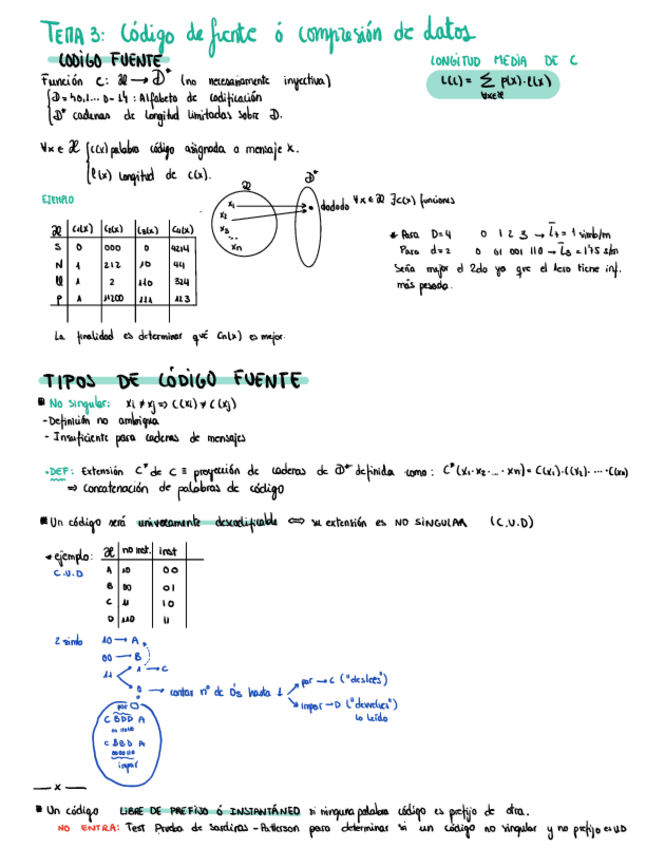 TEMA 3: Código de fuente ó compresión de datos
CODIGO FUENTE
LONGITUD MEDIA DE C
L(C) = Σ p(x)·l(x)
∀x∈𝒳
Función C: 𝒳 → D* (no necesariamente inyectiva)
D = {0,1... D-1} : Alfabeto de codificación
D* cadenas de longitud limitadas sobre D.
∀x ∈ 𝒳 { c(x) palabra código asignada a mensaje x.
l(x) longitud de c(x).
EJEMPLO
𝒳 D*
x1
x2
x3
...
xn
∀x ∈ 𝒳 ∃c(x) funciones
𝒳 C1(x) C2(x) C3(x) C4(x)
S 0 000 0 4214
N 1 212 10 44
1 2 110 324
P 1 11200 111 123
* Para D=4 0 1 2 3 → L̄4 = 1 simb/m
Para d=2 0 01 001 110 → L̄3 = 1'75 s/m
Sería mejor el 2do ya que el 1ero tiene inf.
más pesada.
La finalidad es determinar qué Cn(x) es mejor.
TIPOS DE CÓDIGO FUENTE
No singular: xi ≠ xj ⇒ C(xi) ≠ C(xj)
- Definición no ambigua
- Insuficiente para cadenas de mensajes
• DEF: Extensión C* de C ≡ proyección de cadenas de D* definida como: C*(x1·x2·...·xn) = C(x1)·C(x2)·...·C(xn)
⇒ concatenación de palabras de código
Un código será univocamente descodificable ⟺ su extensión es NO SINGULAR (C.U.D)
* ejemplo:
C.U.D
𝒳 no inst. inst
A 10 00
B 00 01
C 11 10
D 110 11
2 simb 10 → A
00 → B
11 1 → C
0 → contar nº de 0's hasta 1
par → C ("deslees")
impar → D ("devuelves")
lo leído
par
C B D D A
C B B D A
impar
x
Un código LIBRE DE PREFIJO Ó INSTANTÁNEO si ninguna palabra código es prefijo de otra.
NO ENTRA: Test Prueba de Sardinas-Patterson para determinar si un código no singular y no prefijo es UD